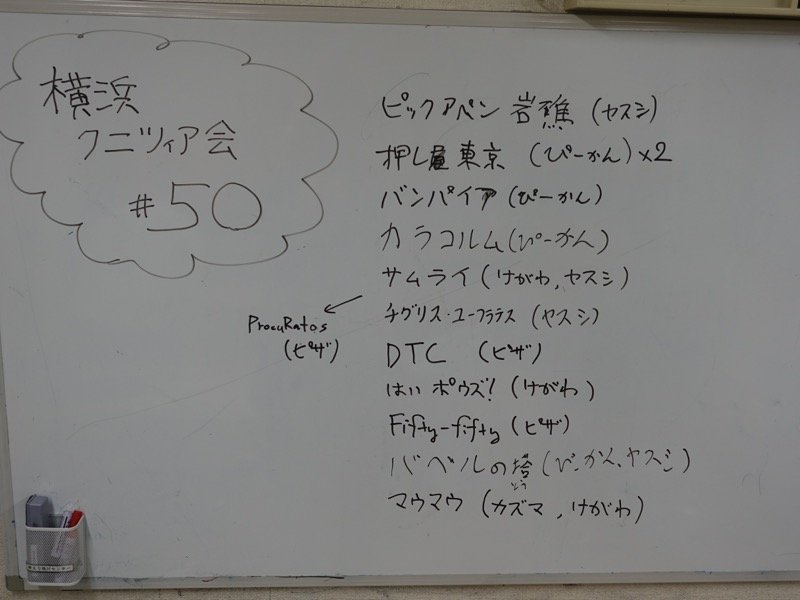 横浜
クニツィア会
#50
ピックアペン 岩礁 (ヤスシ)
押し屋 東京 (ぴーかん)×2
バンパイア (ぴーかん)
カラコルム (ぴーかん)
サムライ (けがわ, ヤスシ)
ProcuRatos
(ピザ)
チグリス・ユーフラテス (ヤスシ)
DTC (ピザ)
はい ポウズ! (けがわ)
Fifty-fifty (ピザ)
バベルの塔 (ぴーかん, ヤスシ)
とう
マウマウ (カズマ, けがわ)